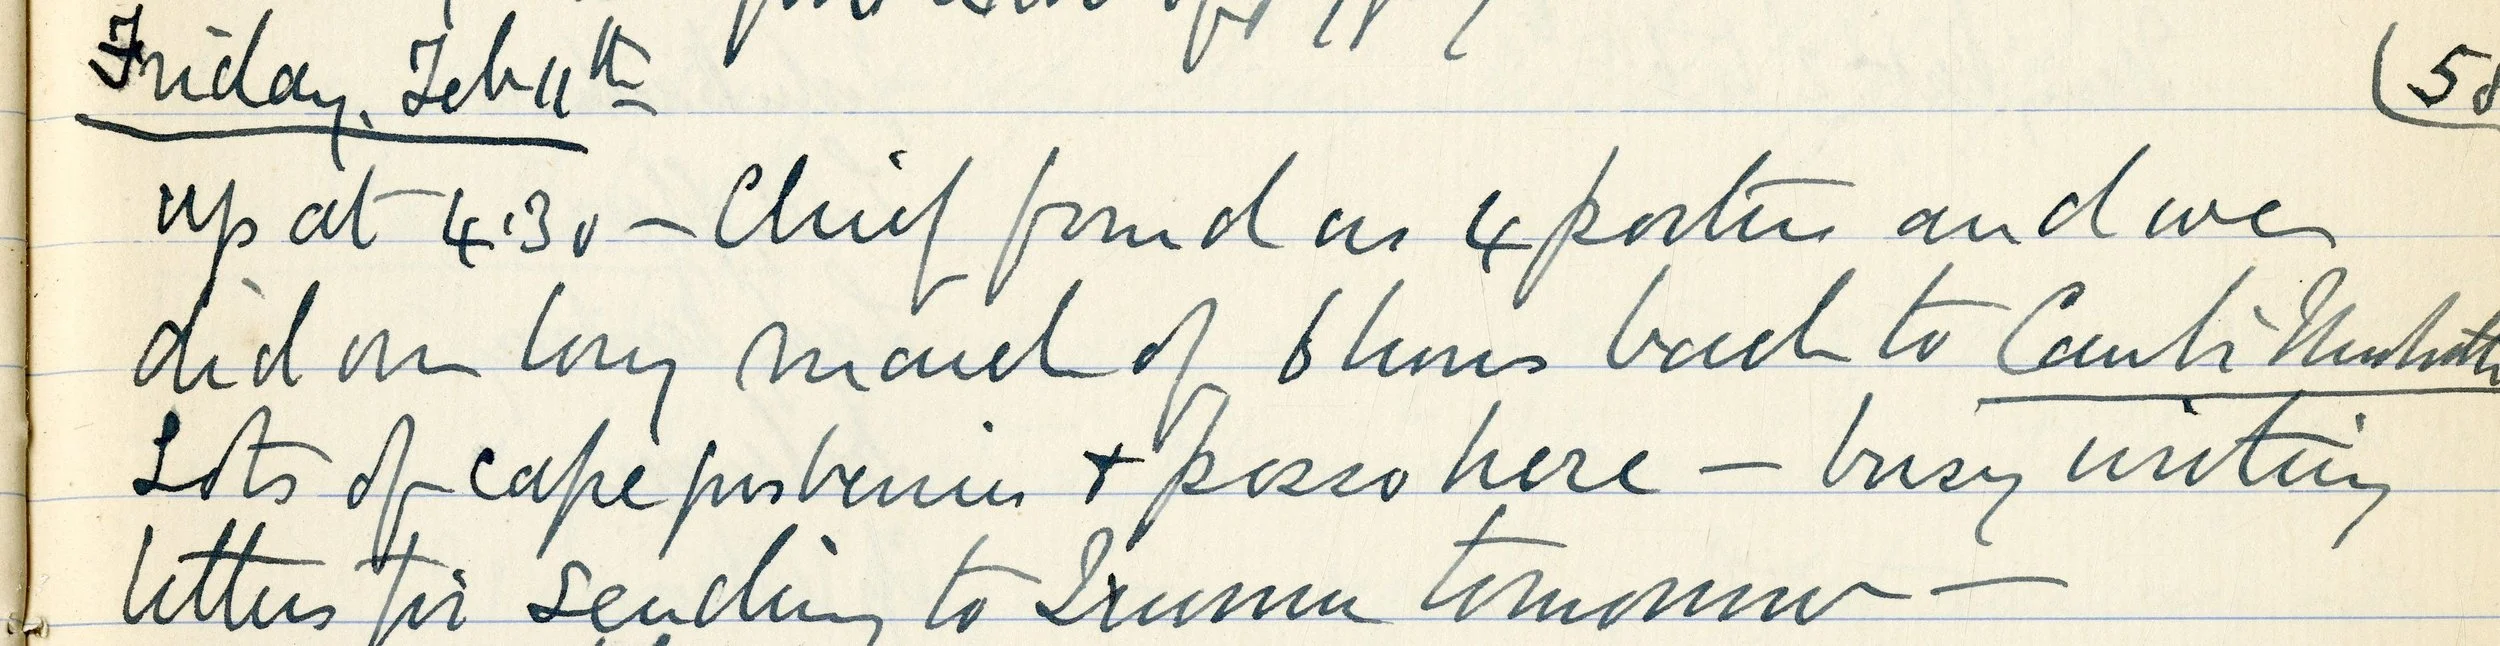 Friday, Feb 11th
(58
up at 4.30 – Chief found us 4 porters and we
did our long march of 6 hours back to
Lots of cape gooseberries + posso here – busy writing
letters for sending to tomorrow –